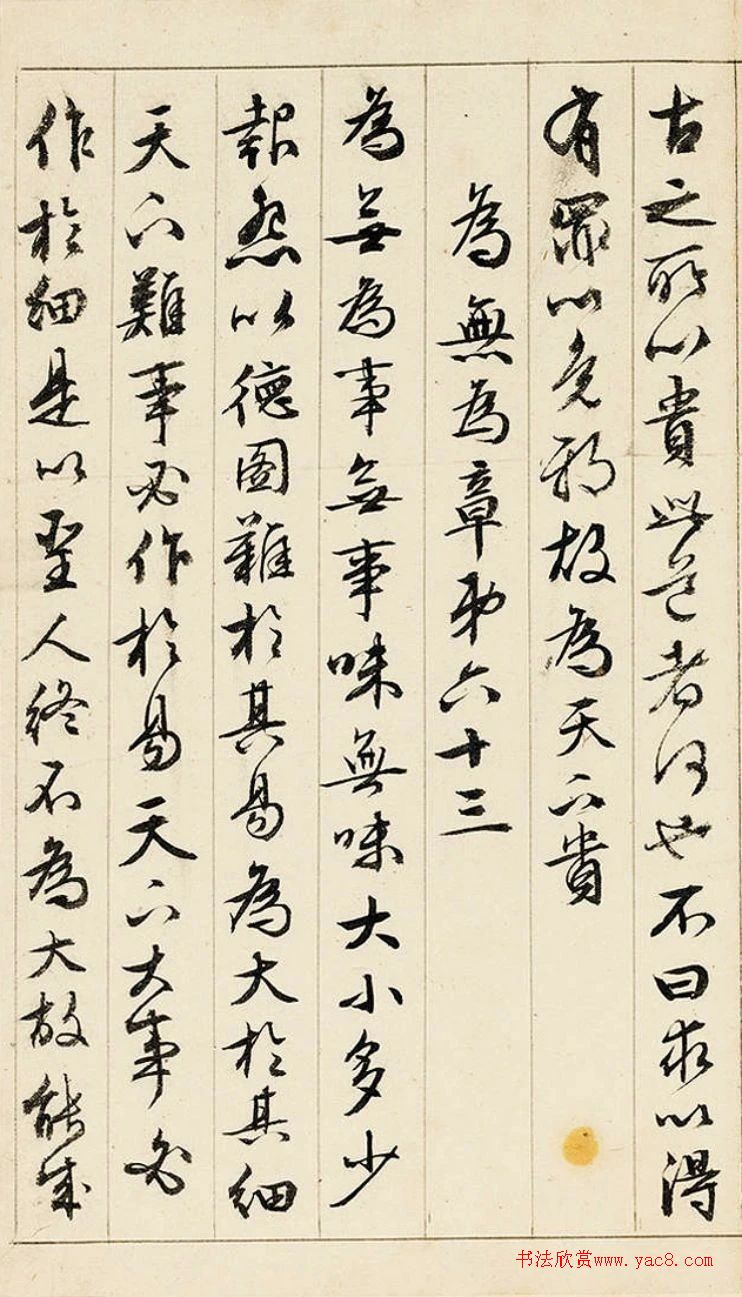 古之所以貴此道者何也不曰求以得
有罪以免邪故為天下貴
為無為章第六十三
為無為事無事味無味大小多少
報怨以德图難於其易為大於其細
天下難事必作於易天下大事必
作於細是以聖人終不為大故能成
书法欣赏www.yac8.com